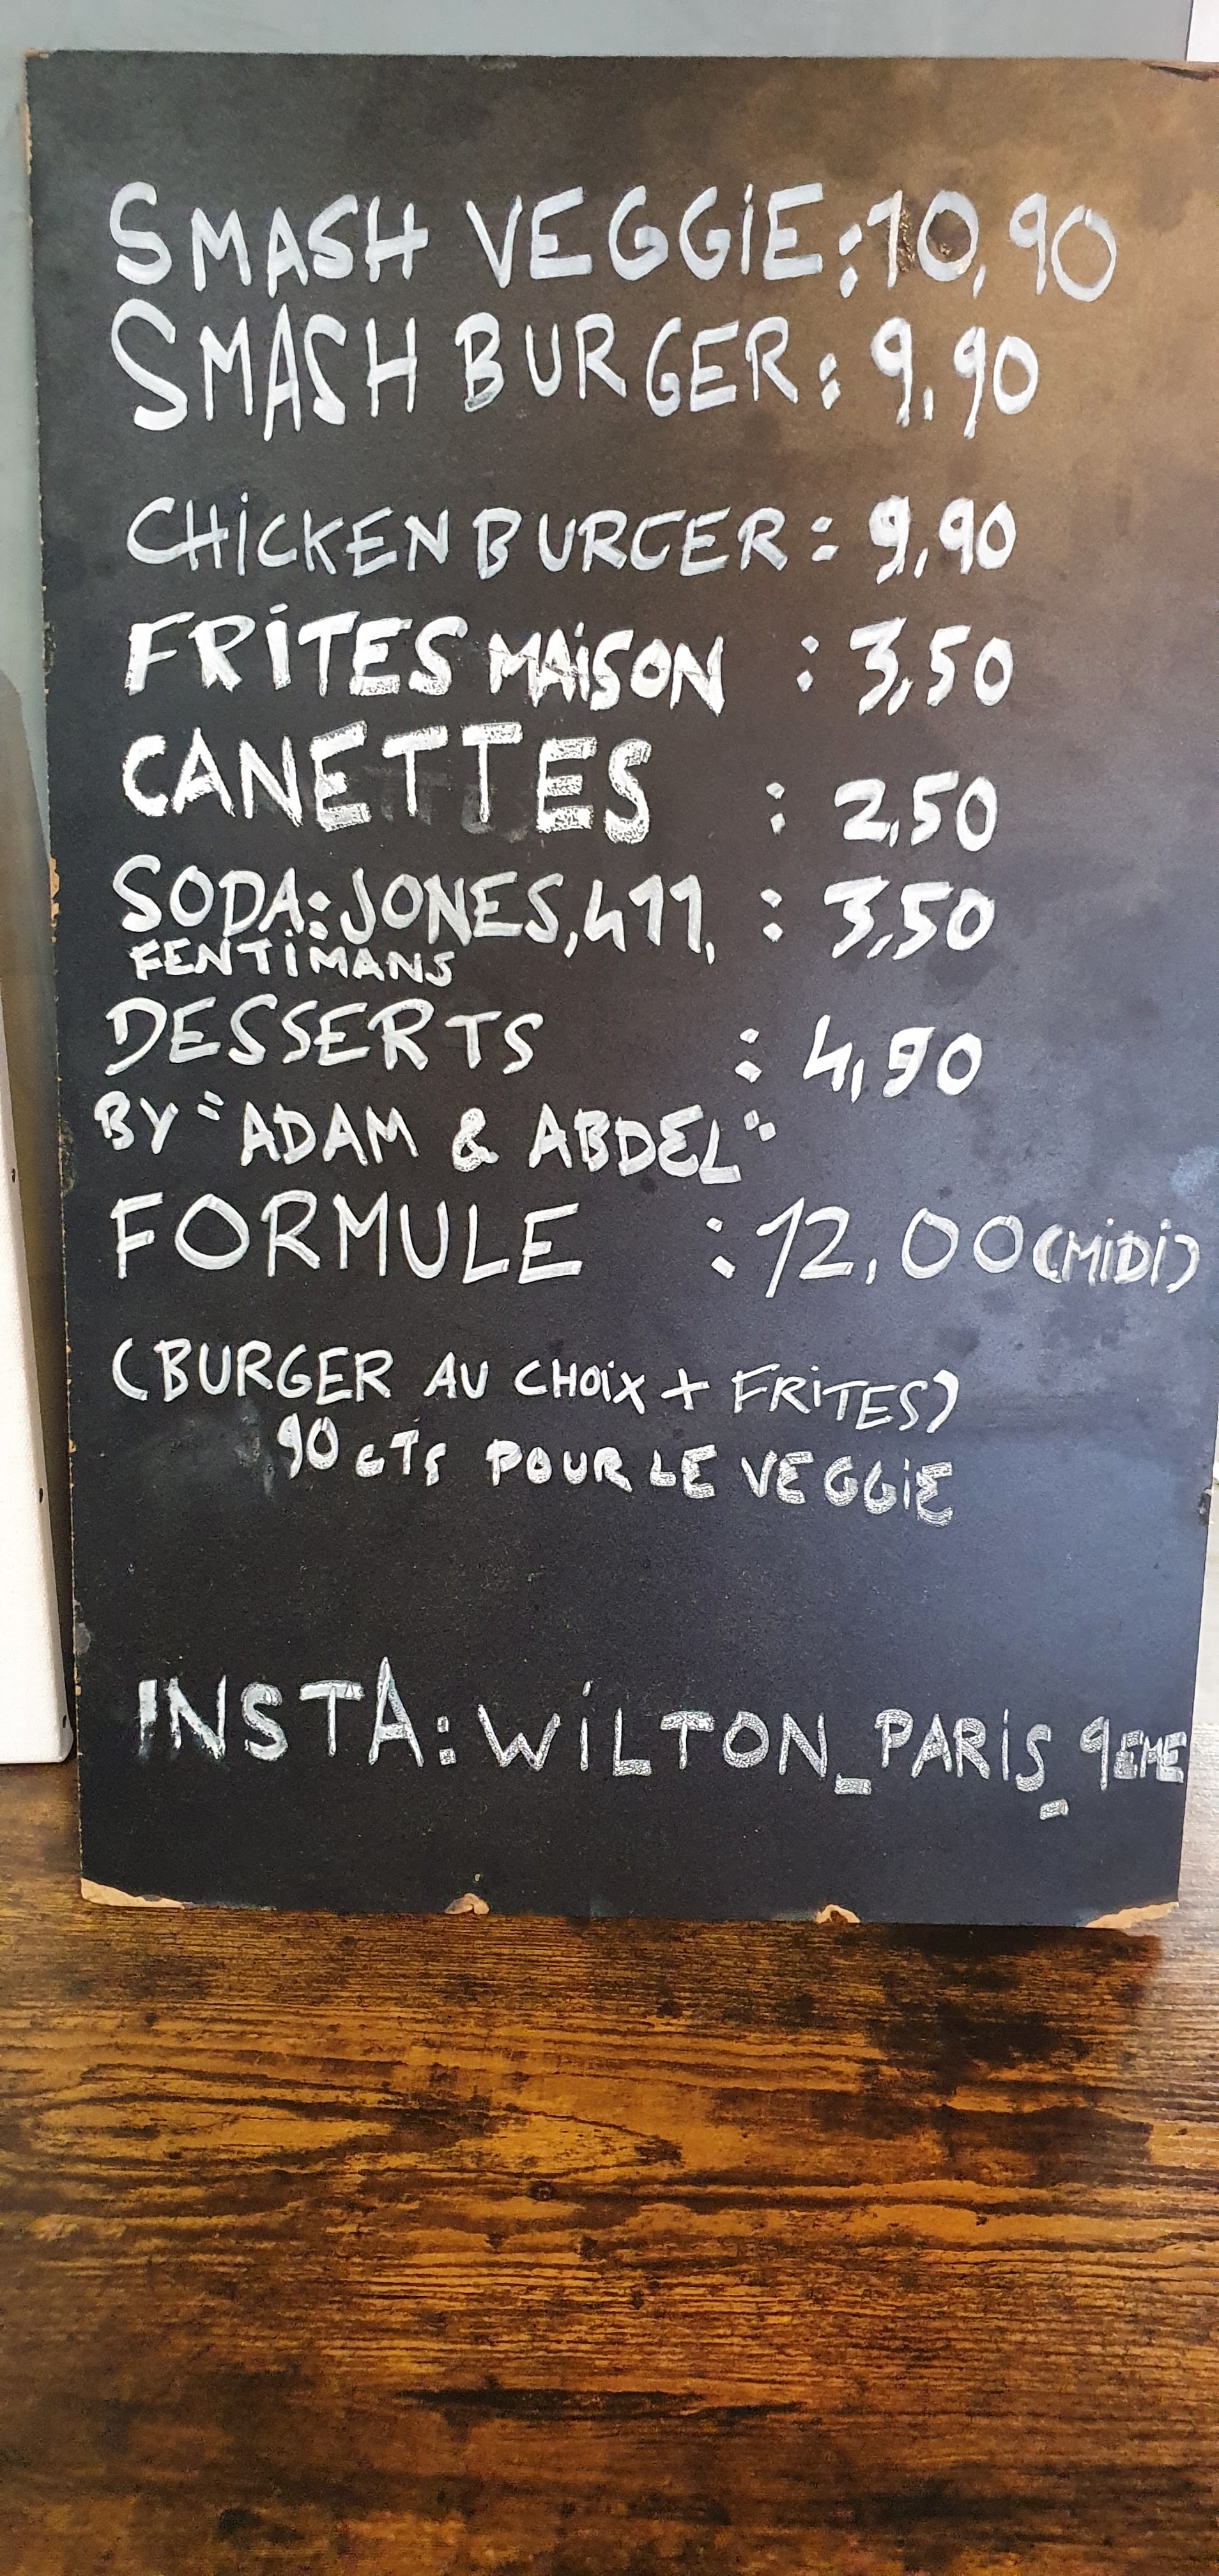 SMASH VEGGIE:10,90
SMASH BURGER: 9,90
CHICKEN BURGER: 9,90
FRITES MAISON : 3,50
CANETTES : 2,50
SODA: JONES, 411, : 3,50
FENTIMANS
DESSERTS : 4,90
BY "ADAM & ABDEL"
FORMULE : 12,00 (MIDI)
(BURGER AU CHOIX + FRITES)
90 CTS POUR LE VEGGIE
INSTA: WILTON_PARIS_9EME